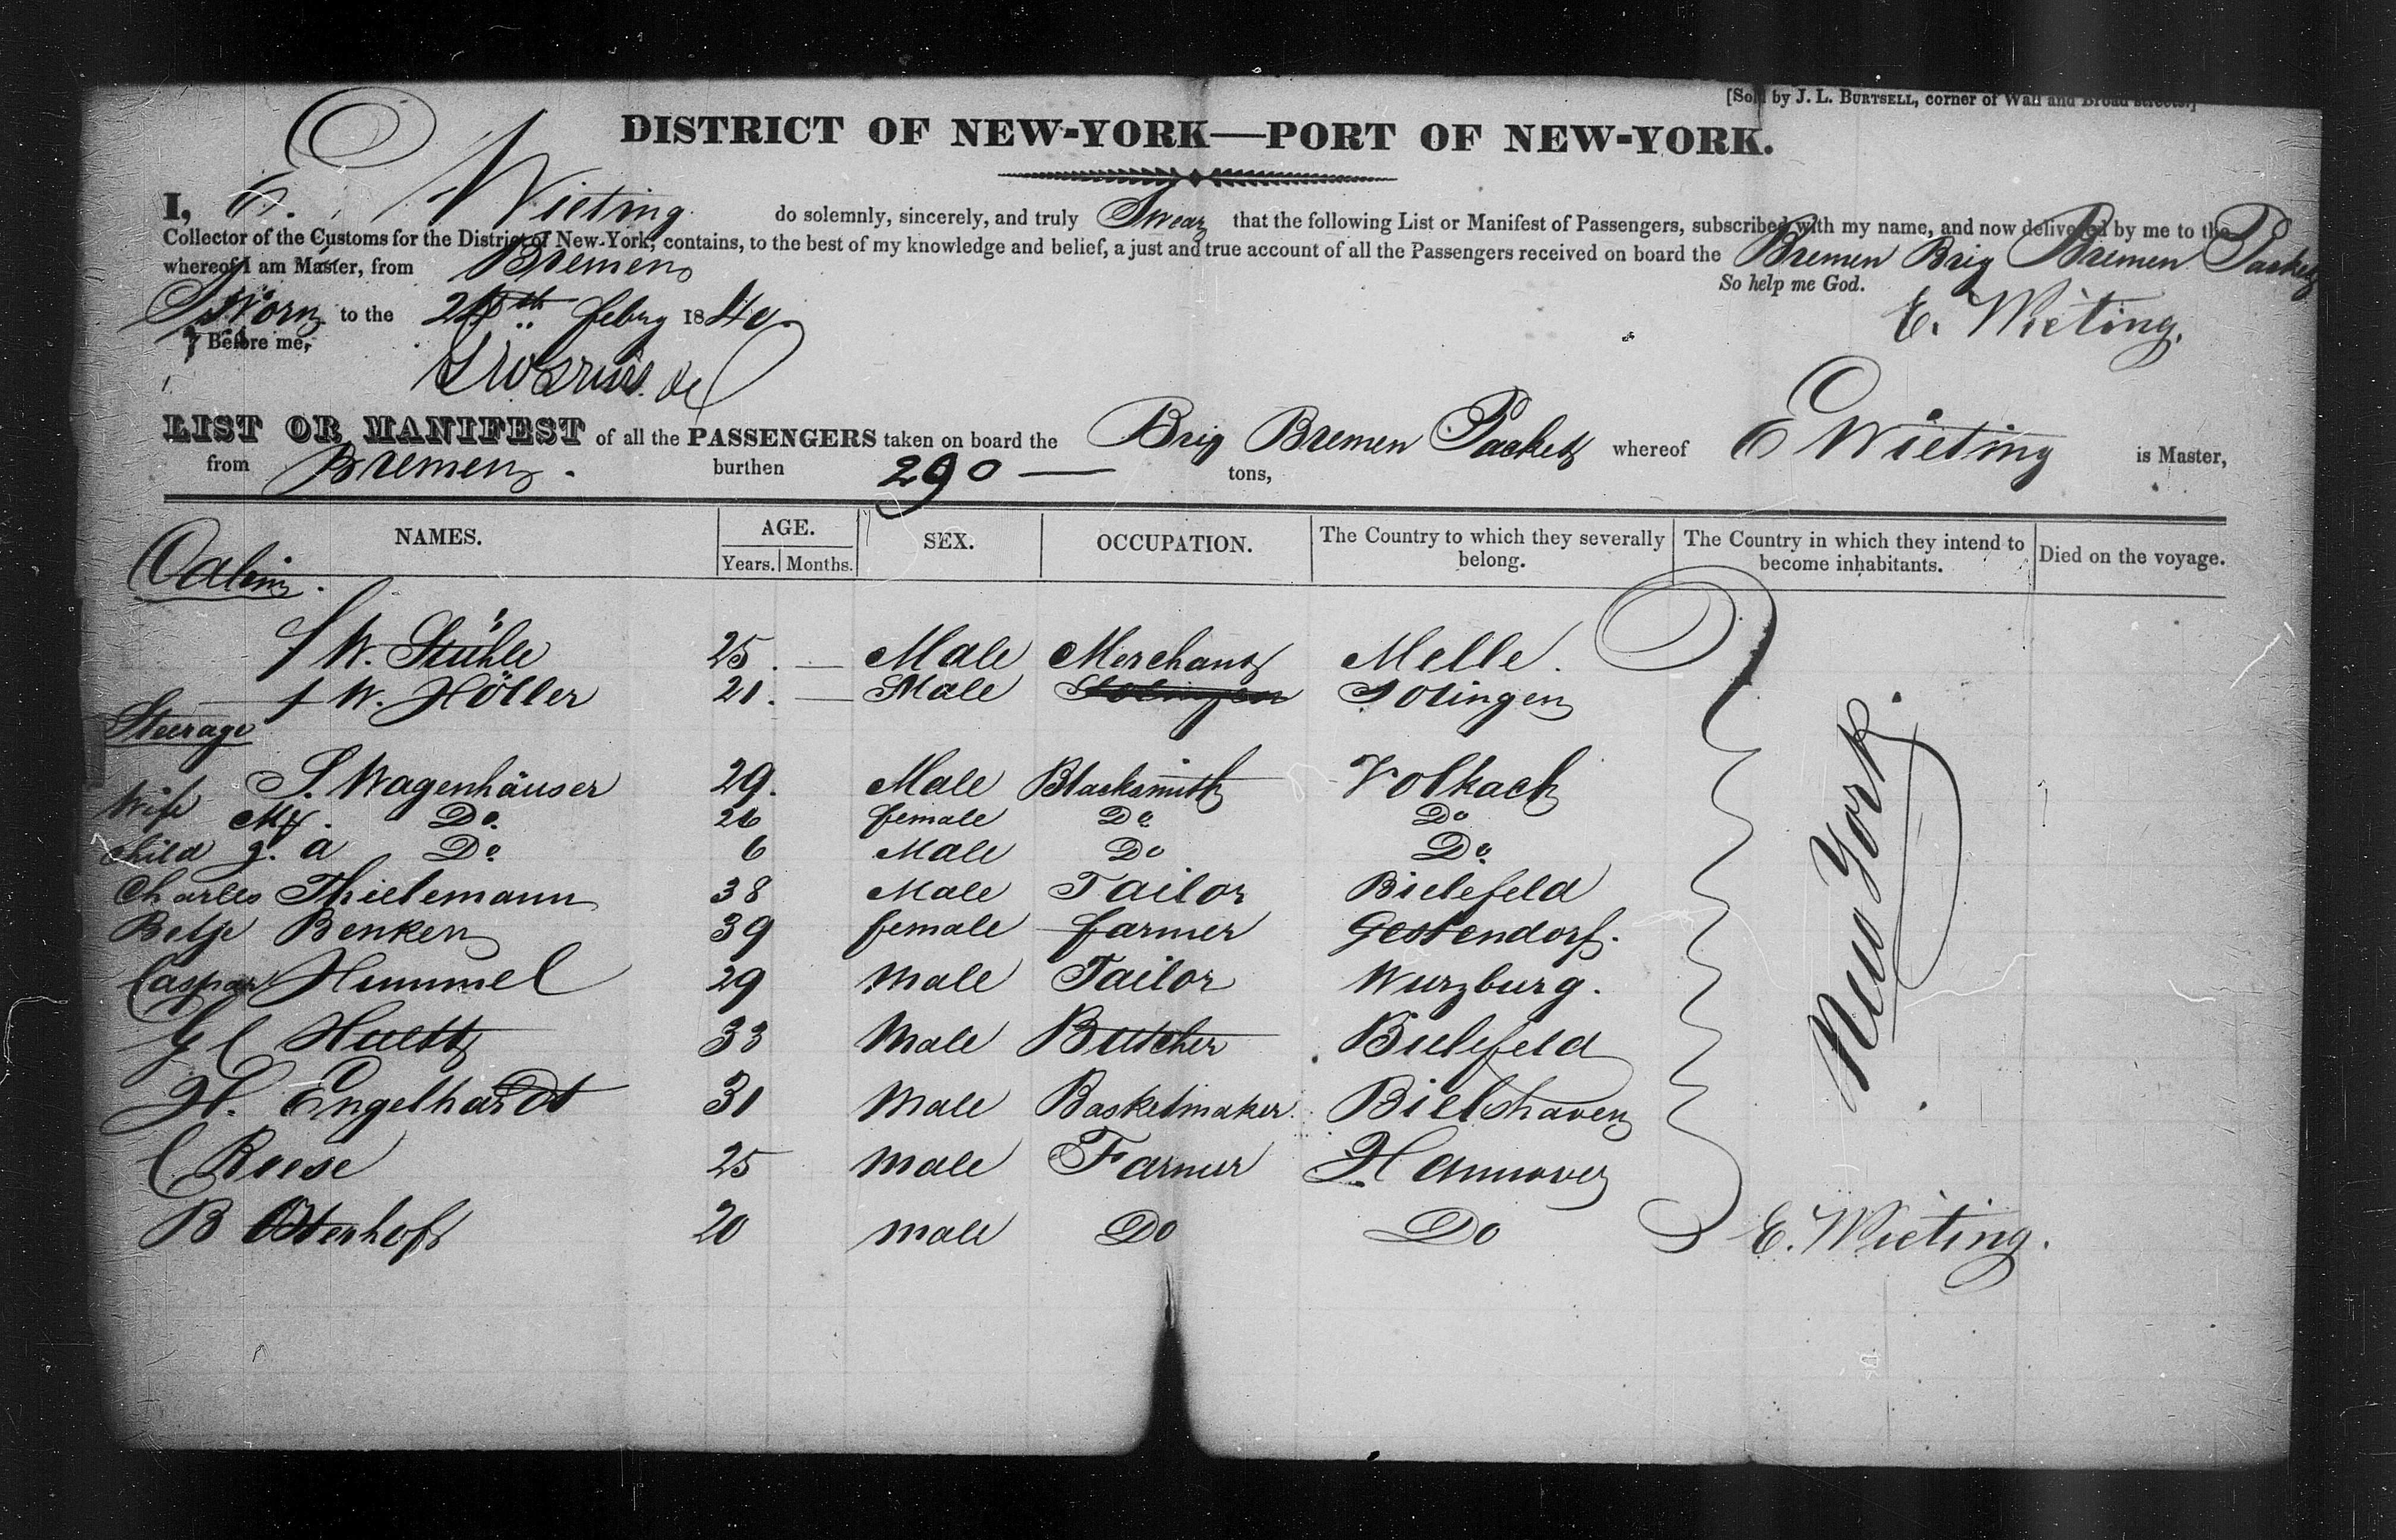 [Sold by J. L. BURTSELL, corner of Wall and Broad streets.]
DISTRICT OF NEW-YORK—PORT OF NEW-YORK.
I, E. Wieting do solemnly, sincerely, and truly Swear that the following List or Manifest of Passengers, subscribed with my name, and now delivered by me to the
Collector of the Customs for the District of New-York, contains, to the best of my knowledge and belief, a just and true account of all the Passengers received on board the Bremen Brig Bremen Packet
whereof I am Master, from Bremen
So help me God.
Sworn to the Feby 1840. E. Wieting.
Before me,
LIST OR MANIFEST of all the PASSENGERS taken on board the Brig Bremen Packet whereof E Wieting is Master,
from Bremen. burthen 290 — tons,
NAMES. AGE. SEX. OCCUPATION. The Country to which they severally belong. The Country in which they intend to become inhabitants. Died on the voyage.
Years. Months.
Cabin.
W. Stühle 25. — Male Merchant Melle.
W. Höller 21. — Male Solingen
Steerage
S. Wagenhäuser 29. Male Blacksmith Volkach
Wife Do. 26 female Do Do
child g. a Do. 6 Male Do Do.
Charles Thielemann 38 Male Tailor Bielefeld
Betje Benken 39 female farmer Gestendorf.
Caspar Hummel 29 Male Tailor Wurzburg.
33 Male Butcher Bielefeld
H. Engelhardt 31 Male Basketmaker Bielshaven
C Reese 25 Male Farmer Hannover
B Osterhoff 20 Male Do Do
New York.
E. Wieting.